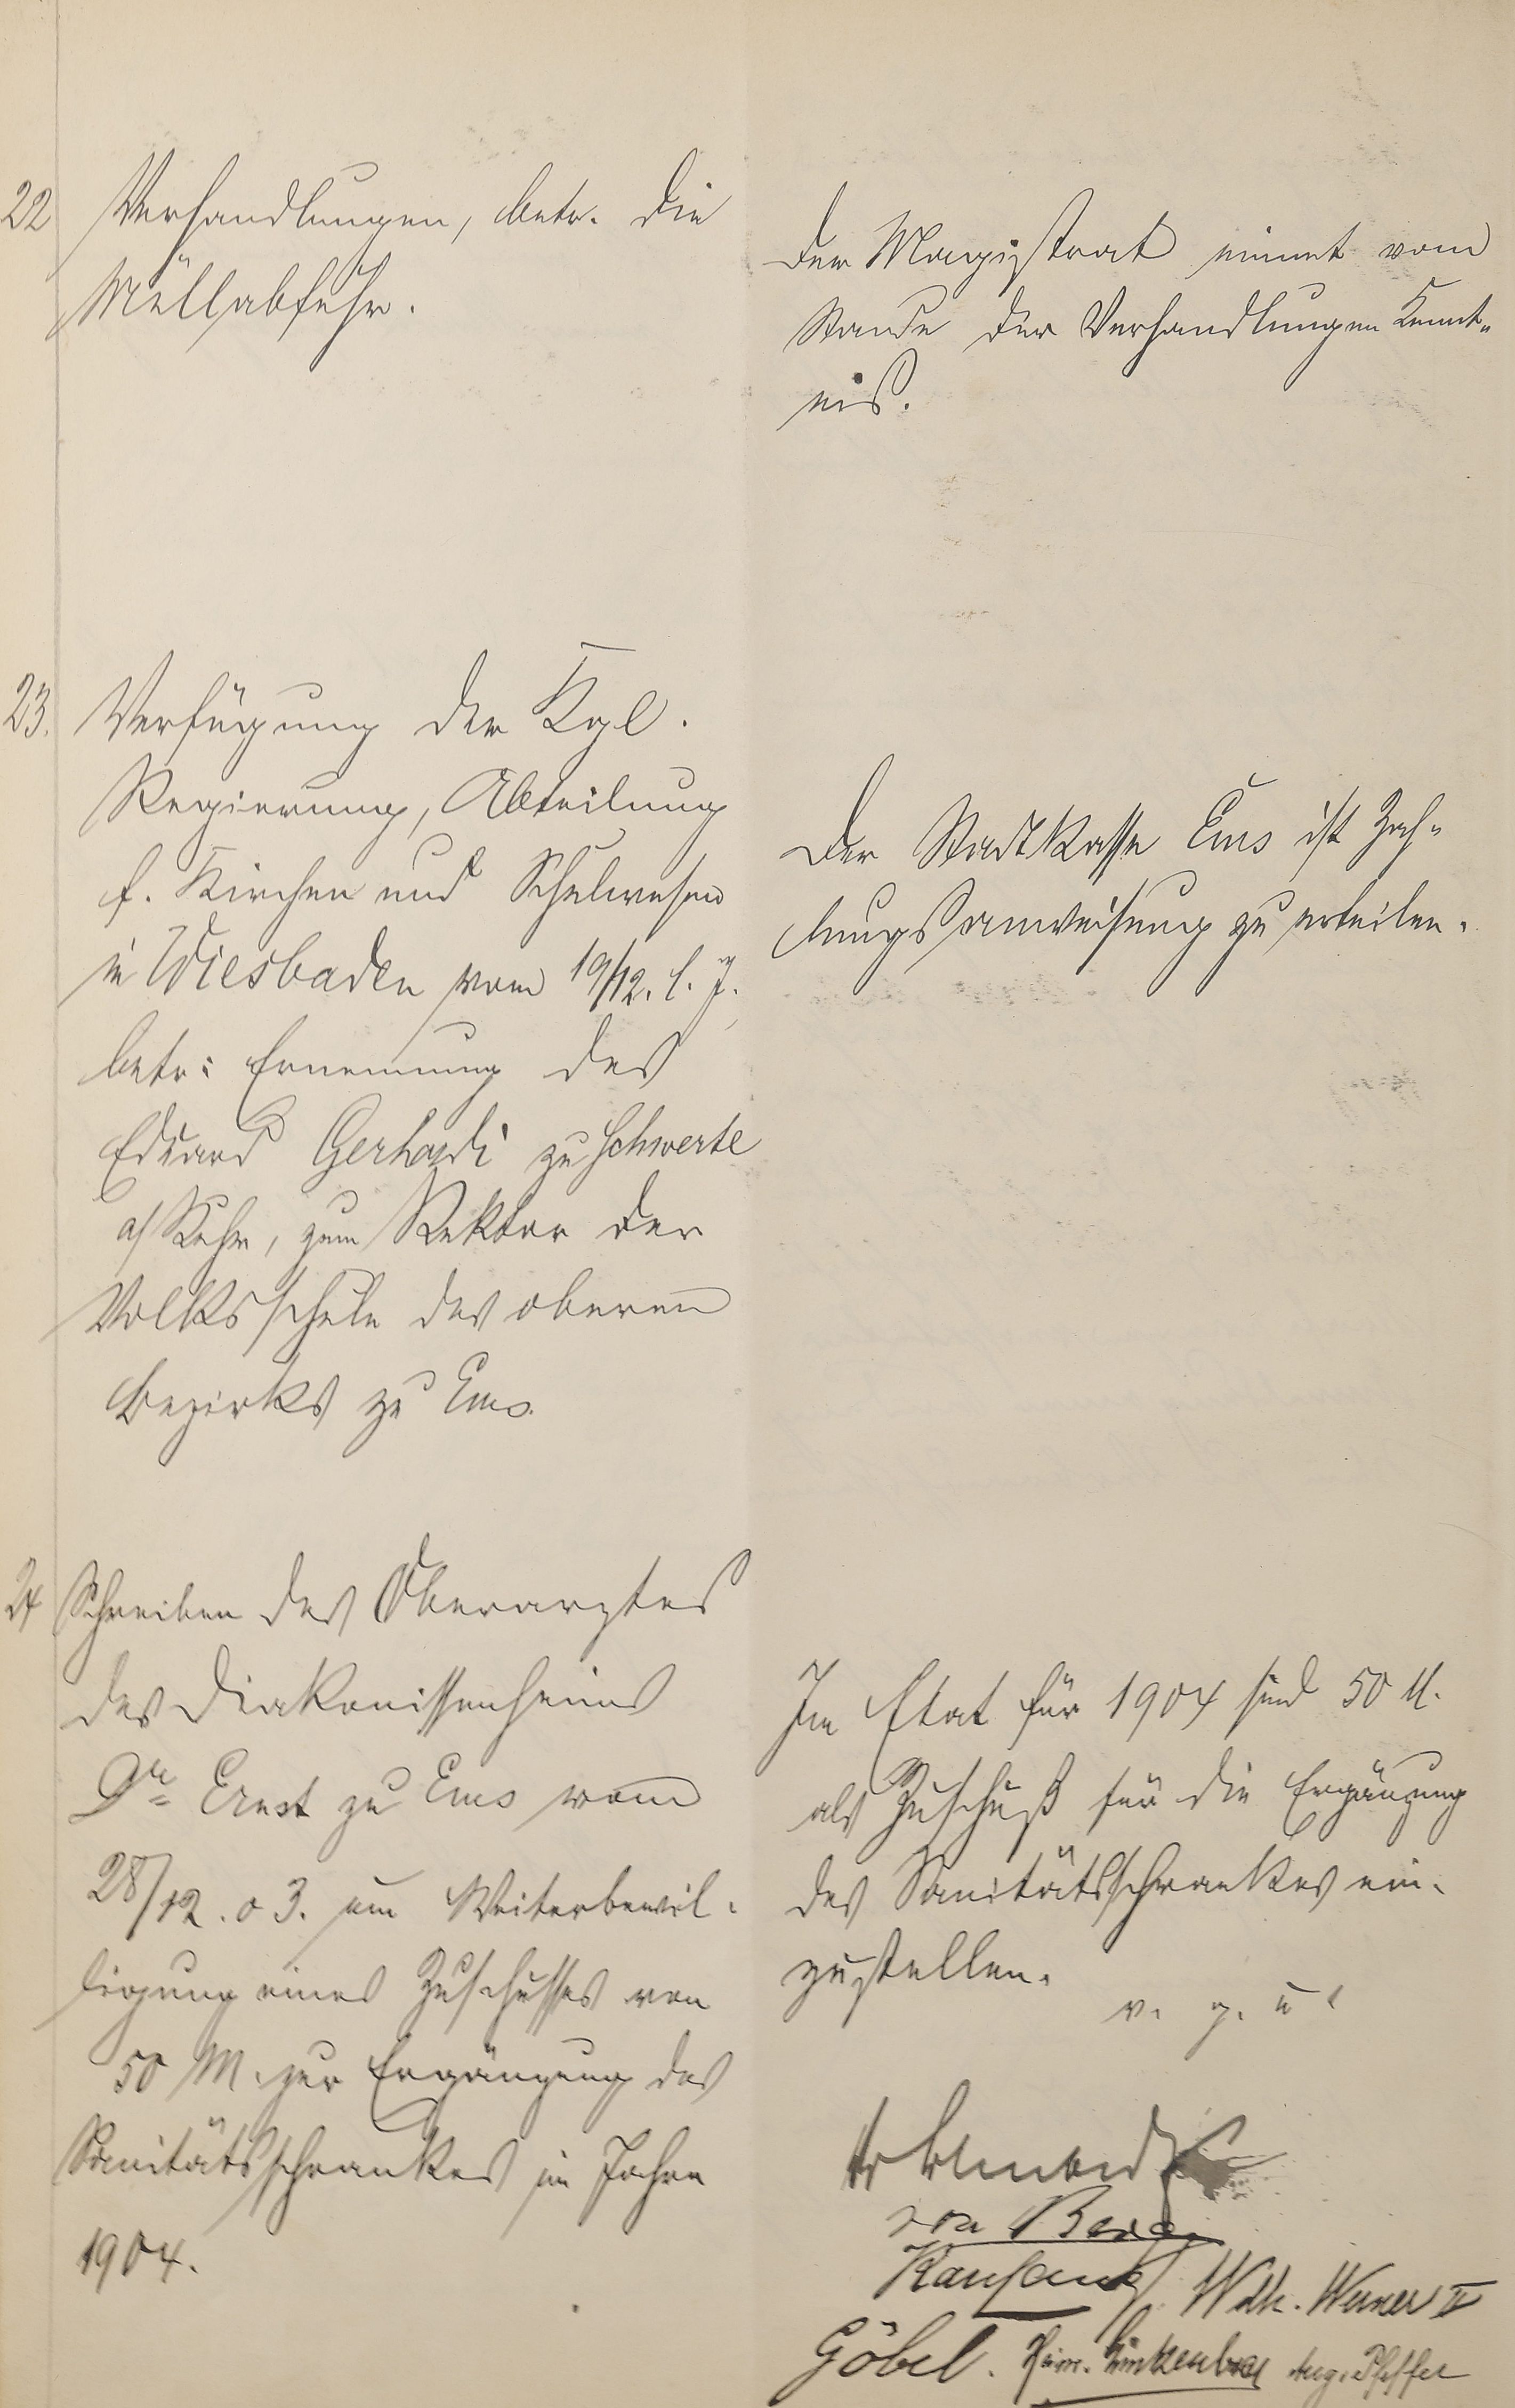 22
Verhandlungen, betr. die
Müllabfuhr.
Der Magistrat nimmt vom
Stande der Verhandlungen Kennt-
nis.
23.
Verfügung der Kgl.
Regierung, Abteilung
f. Kirchen und Schulwesen
in Wiesbaden vom 19/12. l. J.
betr: Ernennung des
Eduard Gerhardi zu Schwerte
a/Ruhr, zum Rektor der
Volksschule des oberen
Bezirks zu Ems.
Der Stadtkasse Ems ist Zah-
lungsanweisung zu erteilen.
24
Schreiben des Oberarztes
des Diakonissenheims
Dr Ernst zu Ems vom
28/12. 03. um Weiterbewil-
ligung eines Zuschusses von
50 M. zur Ergänzung des
Sanitätsschrankes im Jahre
1904.
Im Etat für 1904 sind 50 M.
als Zuschuß für die Ergänzung
des Sanitätsschrankes ein-
zustellen.
v. g. u.
von Berg
Wilh. Werner II
Göbel. Heinr. Linkenbach Aug. Pfeffer